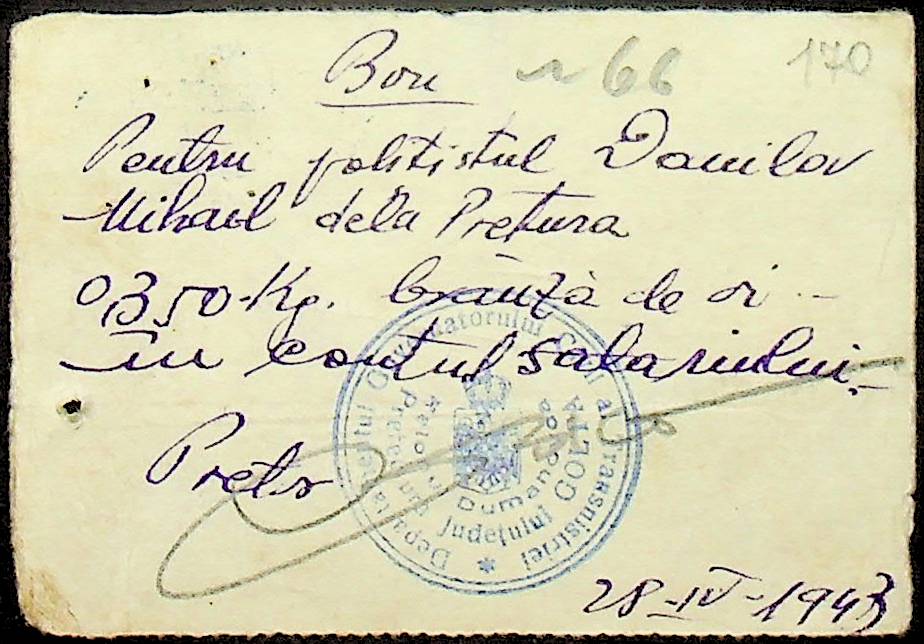 Bon № 66
170
Pentru polițistul Danilov
Mihail dela Pretura
0,350 Kg. brânză de oi -
în contul salariului.-
Pretor
Guvernatorului Civil al Transnistriei
Județului GOLTA
Dumanovca
28-IV-1943